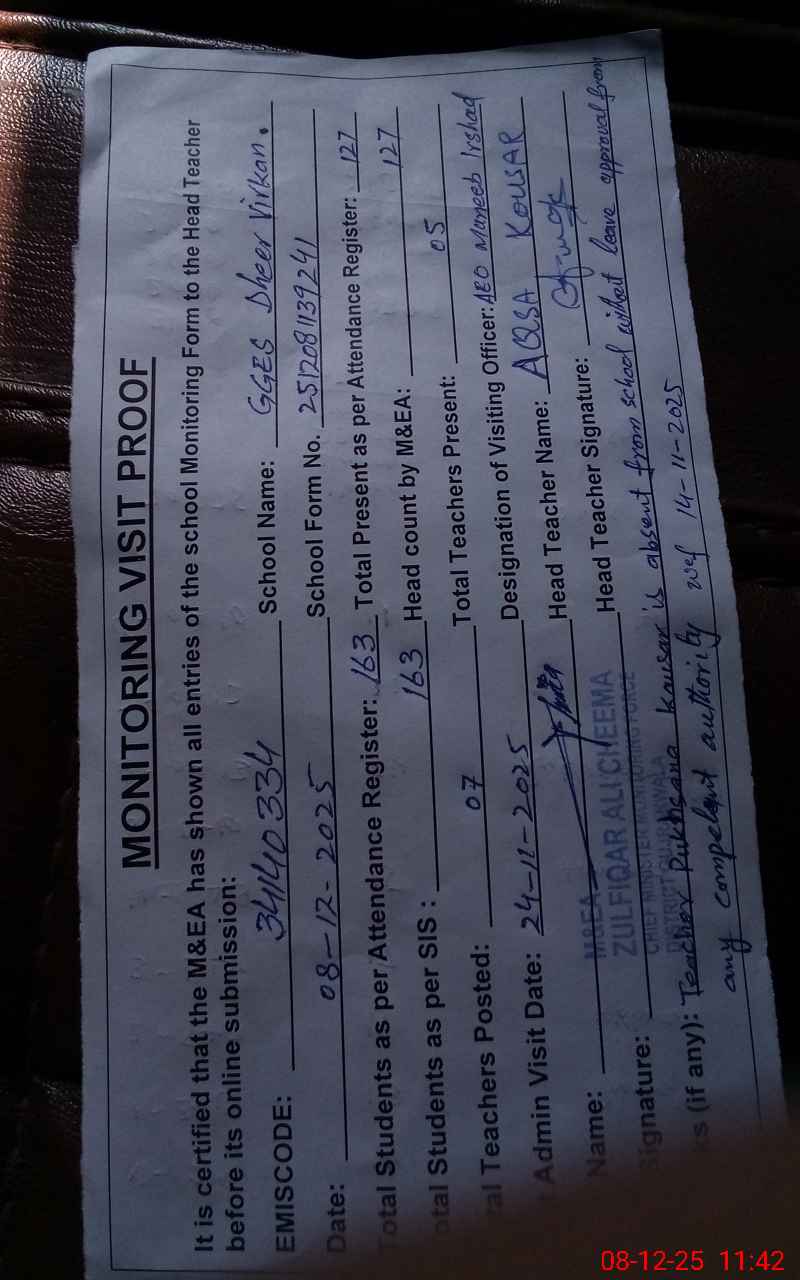 MONITORING VISIT PROOF
It is certified that the M&EA has shown all entries of the school Monitoring Form to the Head Teacher
before its online submission:
EMISCODE: 34140334 School Name: GGES Dheer Virkan.
Date: 08-12-2025 School Form No. 2512081139241
otal Students as per Attendance Register: 163 Total Present as per Attendance Register: 127
otal Students as per SIS : 163 Head count by M&EA: 127
al Teachers Posted: 07 Total Teachers Present: 05
Admin Visit Date: 24-11-2025 Designation of Visiting Officer: AEO Muneeb Irshad
Name: Head Teacher Name: AQSA KOUSAR
M&EA
ZULFIQAR ALI CHEEMA
CHIEF MINISTER MONITORING FORCE
DISTRICT GUJRANWALA
ignature: Head Teacher Signature:
ks (if any): Teacher Rukhsana Kousar is absent from school without leave approval from
any competent authority wef 14-11-2025
08-12-25 11:42